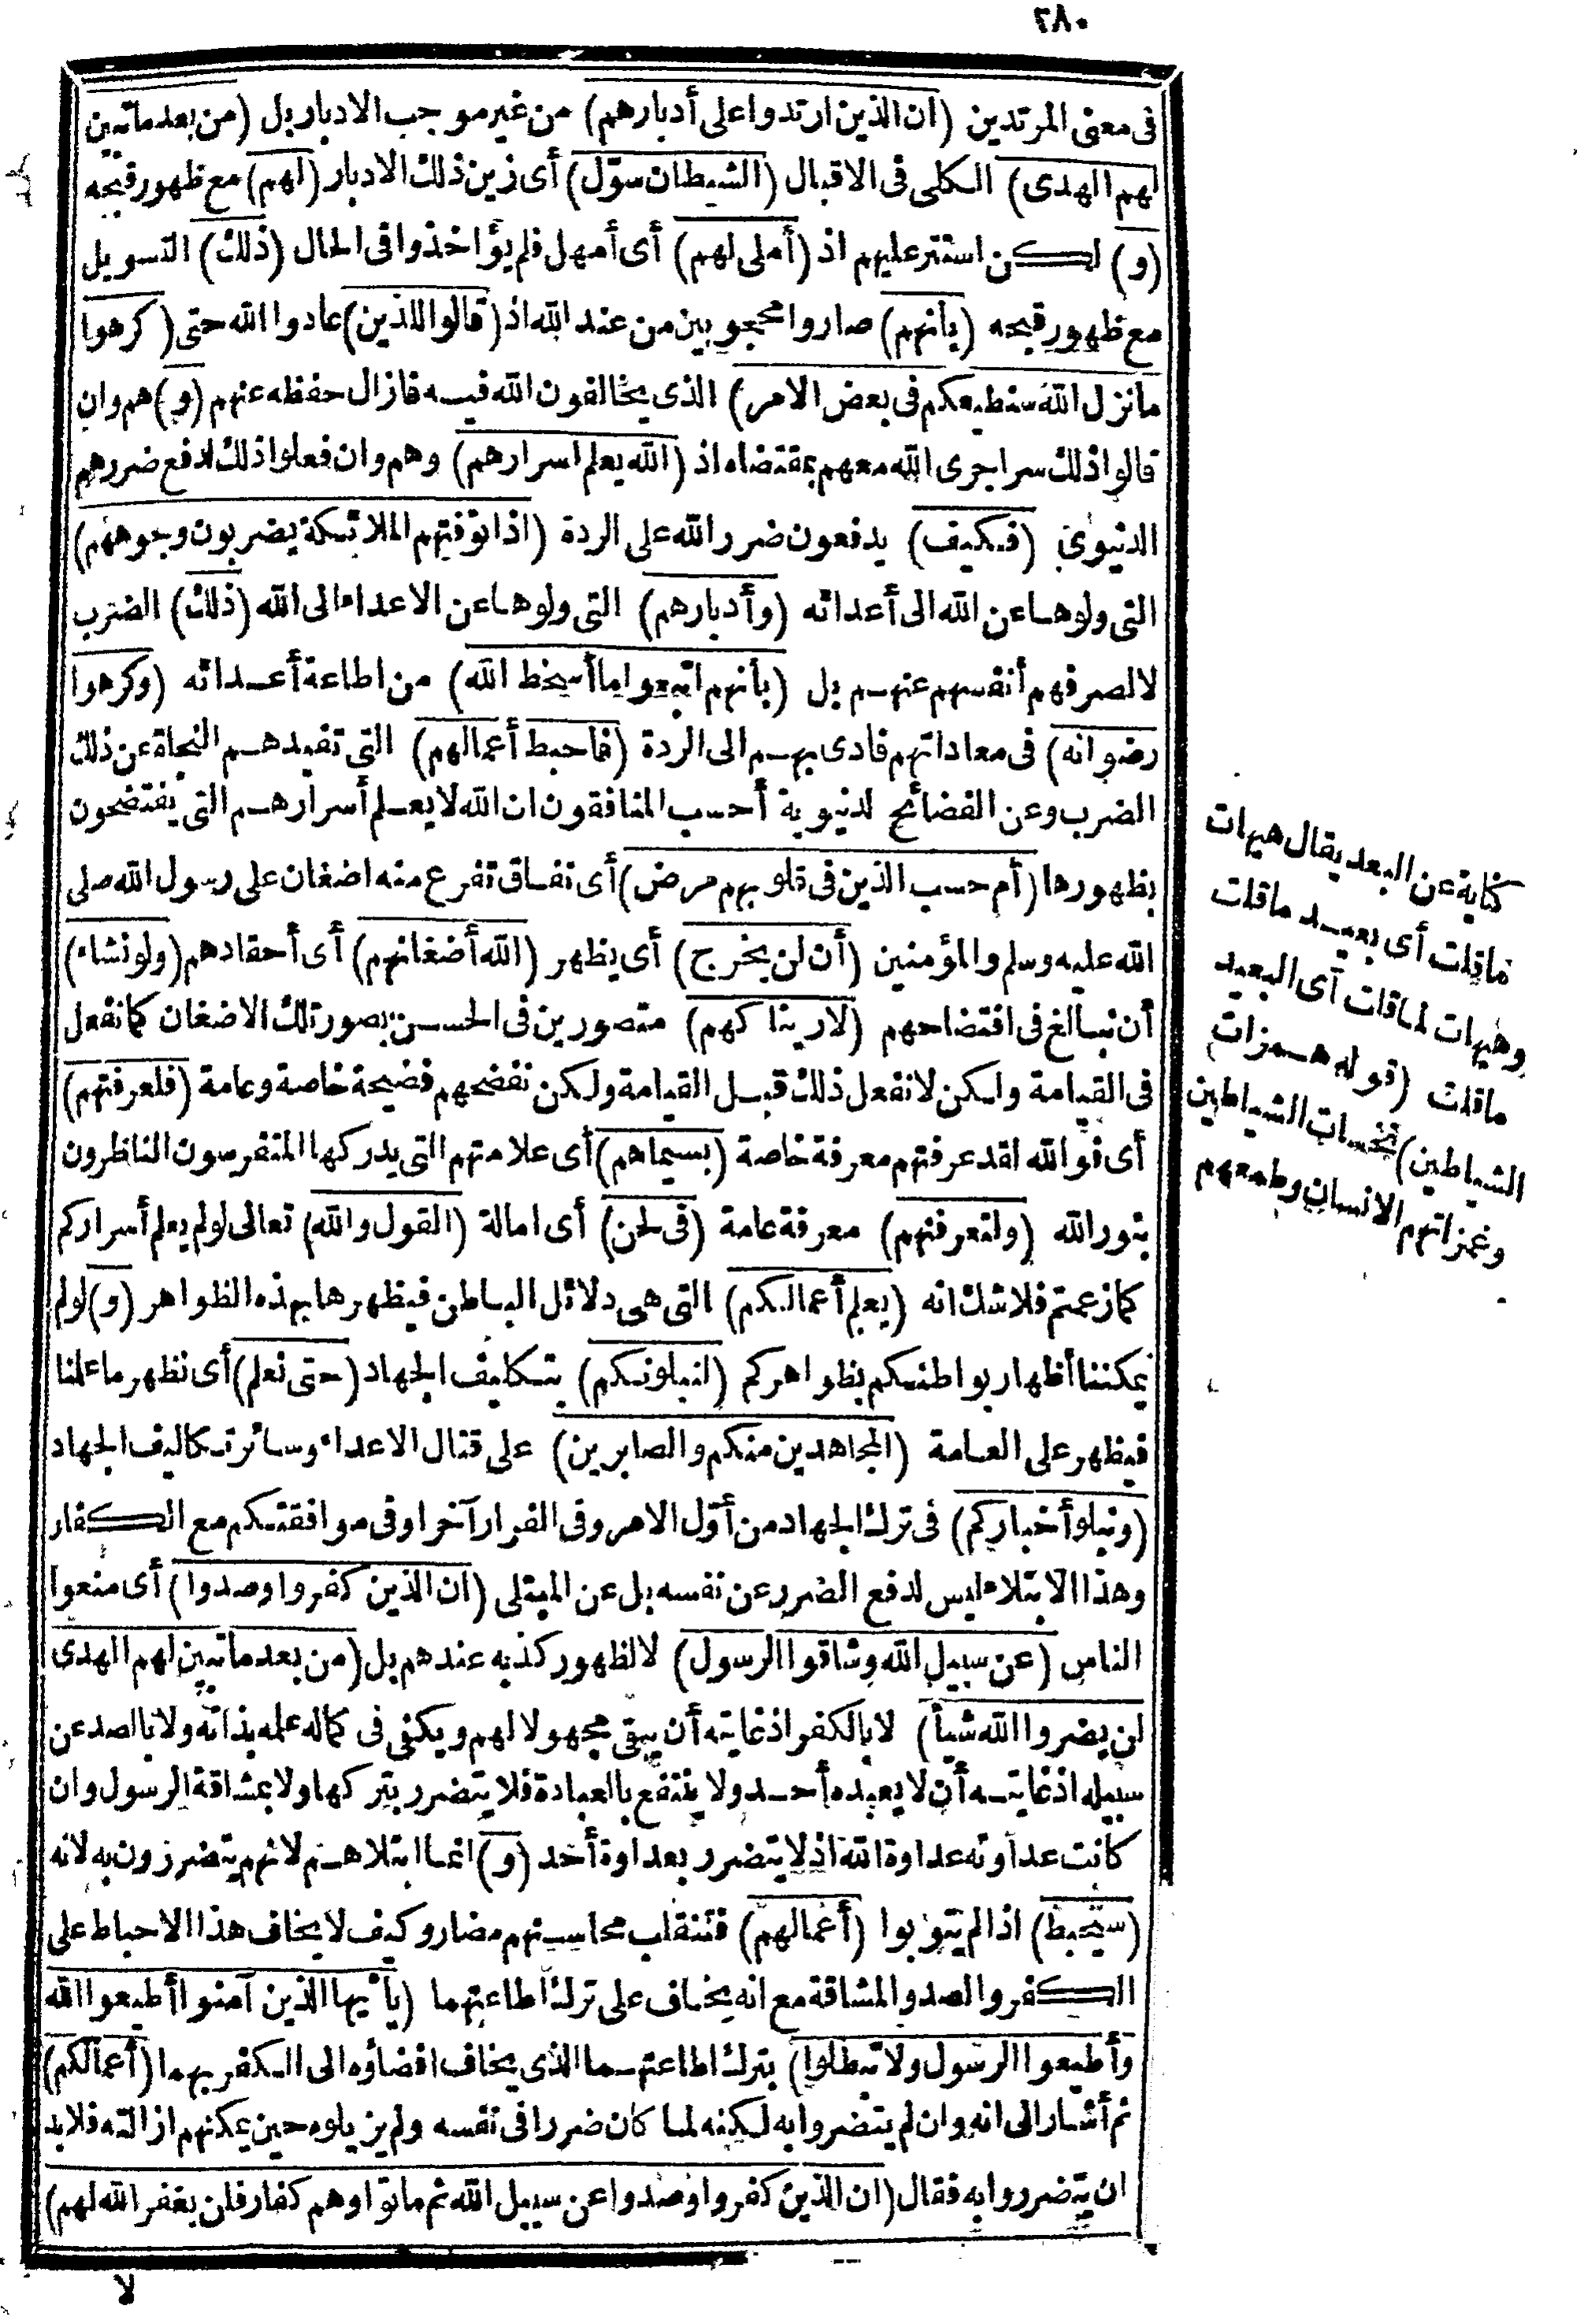 ٢٨٠
فى معنى المرتدين (ان الذين ارتدوا على أدبارهم) من غير موجب الادبار بل (من بعد ماتبين
لهم الهدى) الكلى فى الاقبال (الشيطان سوّل) أى زين ذلك الادبار (لهم) مع ظهور قبحه
(و) لكن استتر عليهم اذ (أملى لهم) أى أمهل فلم يؤاخذوا فى الحال (ذلك) التسويل
مع ظهور قبحه (بأنهم) صاروا محجوبين من عند الله اذ (قالوا للذين) عادوا الله حتى (كرهوا
مانزل الله سنطيعكم فى بعض الامر) الذى يخالفون الله فيه فازال حفظه عنهم (و) هم وان
قالوا ذلك سرا جرى الله معهم بمقتضاه اذ (الله يعلم اسرارهم) وهم وان فعلوا ذلك لدفع ضررهم
الدنيوى (فكيف) يدفعون ضرر الله على الردة (اذا توفتهم الملائكة يضربون وجوههم)
التى ولوها عن الله الى أعدائه (وأدبارهم) التى ولوها عن الاعداء الى الله (ذلك) الضرب
لالصرفهم أنفسهم عنهم بل (بأنهم اتبعوا ما أسخط الله) من اطاعة أعدائه (وكرهوا
رضوانه) فى معاداتهم فادى بهم الى الردة (فاحبط أعمالهم) التى تفيدهم النجاة عن ذلك
الضرب وعن الفضائح لدنيوية أحسب المنافقون ان الله لا يعلم أسرارهم التى يفتضحون
بظهورها (أم حسب الذين فى قلوبهم مرض) أى نفاق تفرع منه اضغان على رسول الله صلى
الله عليه وسلم والمؤمنين (أن لن يخرج) أى يظهر (الله أضغانهم) أى أحقادهم (ولو نشاء)
أن نبالغ فى افتضاحهم (لاريناكهم) متصورين فى الحسن بصورة تلك الاضغان كما نفعل
فى القيامة ولكن لا نفعل ذلك قبل القيامة ولكن نفضحهم فضيحة خاصة وعامة (فلعرفتهم)
أى فوالله لقد عرفتهم معرفة خاصة (بسيماهم) أى علامتهم التى يدركها المتفرسون الناظرون
بنور الله (ولتعرفنهم) معرفة عامة (فى لحن) أى امالة (القول والله) تعالى لو لم يعلم أسراركم
كما زعمتم فلا شك انه (يعلم أعمالكم) التى هى دلائل الباطن فيظهرها بهذه الظواهر (و) لو لم
يمكننا أظهار بواطنكم بظواهركم (لنبلونكم) بتكليف الجهاد (حتى نعلم) أى نظهر ما علمنا
فيظهر على العامة (المجاهدين منكم والصابرين) على قتال الاعداء وسائر تكاليف الجهاد
(ونبلو أخباركم) فى ترك الجهاد من أوّل الامر وفى الفرار آخرا وفى موافقتكم مع الكفار
وهذا الابتلاء ليس لدفع الضرر عن نفسه بل عن المبتلى (ان الذين كفروا وصدوا) أى منعوا
الناس (عن سبيل الله وشاقوا الرسول) لا لظهور كذبه عندهم بل (من بعد ماتبين لهم الهدى
لن يضروا الله شيأ) لا بالكفر اذ غايته أن يبقى مجهولا لهم ويكفى فى كماله علمه بذاته ولا بالصد عن
سبيله اذ غايته أن لا يعبده أحد ولا ينتفع بالعبادة فلا يتضرر بتركها ولا بمشاقة الرسول وان
كانت عداوته عداوة الله اذ لا يتضرر بعداوة أحد (و) انما ابتلاهم لانهم يتضررون به لانه
(سيحبط) اذا لم يتوبوا (أعمالهم) فتنقلب محاسنهم مضار وكيف لا يخاف هذا الاحباط على
الكفر والصد والمشاقة مع انه يخاف على ترك اطاعتهما (يأيها الذين آمنوا أطيعوا الله
وأطيعوا الرسول ولا تبطلوا) بترك اطاعتهما الذى يخاف افضاؤه الى الكفر بهما (أعمالكم)
ثم أشار الى انه وان لم يتضروا به لكنه لما كان ضررا فى نفسه ولم يزيلوه حين يمكنهم ازالته فلا بد
ان يتضرروا به فقال (ان الذين كفروا وصدوا عن سبيل الله ثم ماتوا وهم كفار فلن يغفر الله لهم)
لا
كناية عن البعد يقال هيهات
ماقلت أى بعيد ماقلت
وهيهات لماقلت أى البعيد
ماقلت (قوله همزات
الشياطين) نخسات الشياطين
وغمزاتهم الانسان وطمعهم